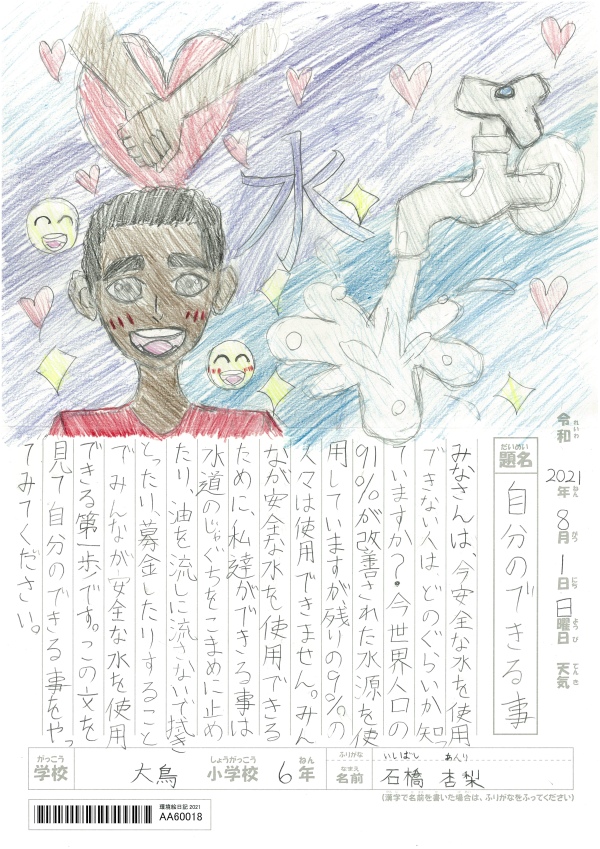 水
令和2021年8月1日日曜日 天気
れいわ ねん がつ にち ようび てんき
だいめい
題名
自分のできる事
みなさんは、今安全な水を使用
できない人は、どのぐらいか知っ
ていますか?今世界人口の
91%が改善された水源を使
用していますが残りの9%の
人々は使用できません。みん
なが安全な水を使用できる
ために、私達ができる事は
水道のじゃぐちをこまめに止め
たり、油を流しに流さないで拭き
とったり、募金したりすること
でみんなが安全な水を使用
できる第一歩です。この文を
見て自分のできる事をやっ
てみてください。
がっこう しょうがっこう ねん
学校 大鳥 小学校 6年
ふりがな いしばし あんり
なまえ
名前 石橋 杏梨
(漢字で名前を書いた場合は、ふりがなをふってください)
環境絵日記 2021
AA60018